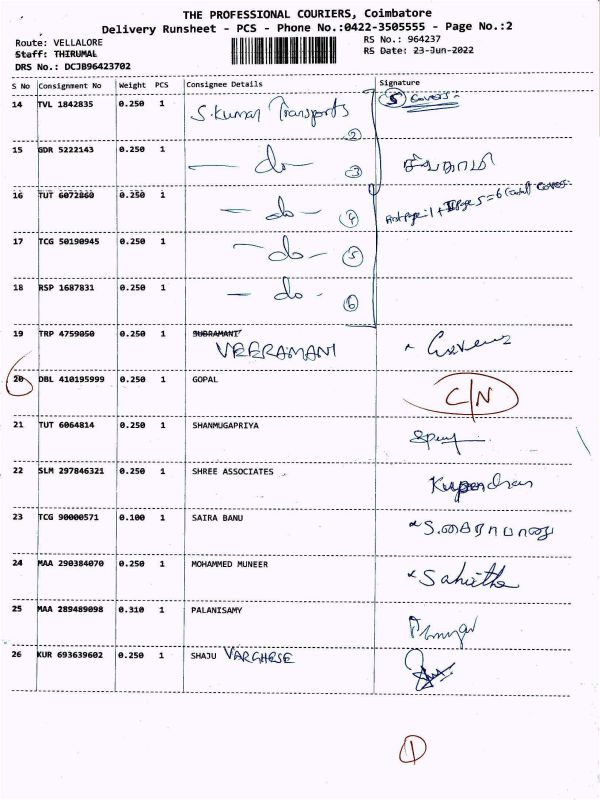 THE PROFESSIONAL COURIERS, Coimbatore
Delivery Runsheet - PCS - Phone No.:0422-3505555 - Page No.:2
Route: VELLALORE
RS No.: 964237
Staff: THIRUMAL
RS Date: 23-Jun-2022
DRS No.: DCJB96423702
S No Consignment No Weight PCS Consignee Details Signature
14 TVL 1842835 0.250 1 S.Kumar Transports 2 5 Covers:-
15 GDR 5222143 0.250 1 - do - 3
16 TUT 6072860 0.250 1 - do - 4
17 TCG 50190945 0.250 1 - do - 5
18 RSP 1687831 0.250 1 - do - 6
19 TRP 4759050 0.250 1 SUBRAMANI
VEERAMANI
20 DBL 410195999 0.250 1 GOPAL C/N
21 TUT 6064814 0.250 1 SHANMUGAPRIYA
22 SLM 297846321 0.250 1 SHREE ASSOCIATES
23 TCG 90000571 0.100 1 SAIRA BANU
24 MAA 290384070 0.250 1 MOHAMMED MUNEER
25 MAA 289489098 0.310 1 PALANISAMY
26 KUR 693639602 0.250 1 SHAJU VARGHESE
1